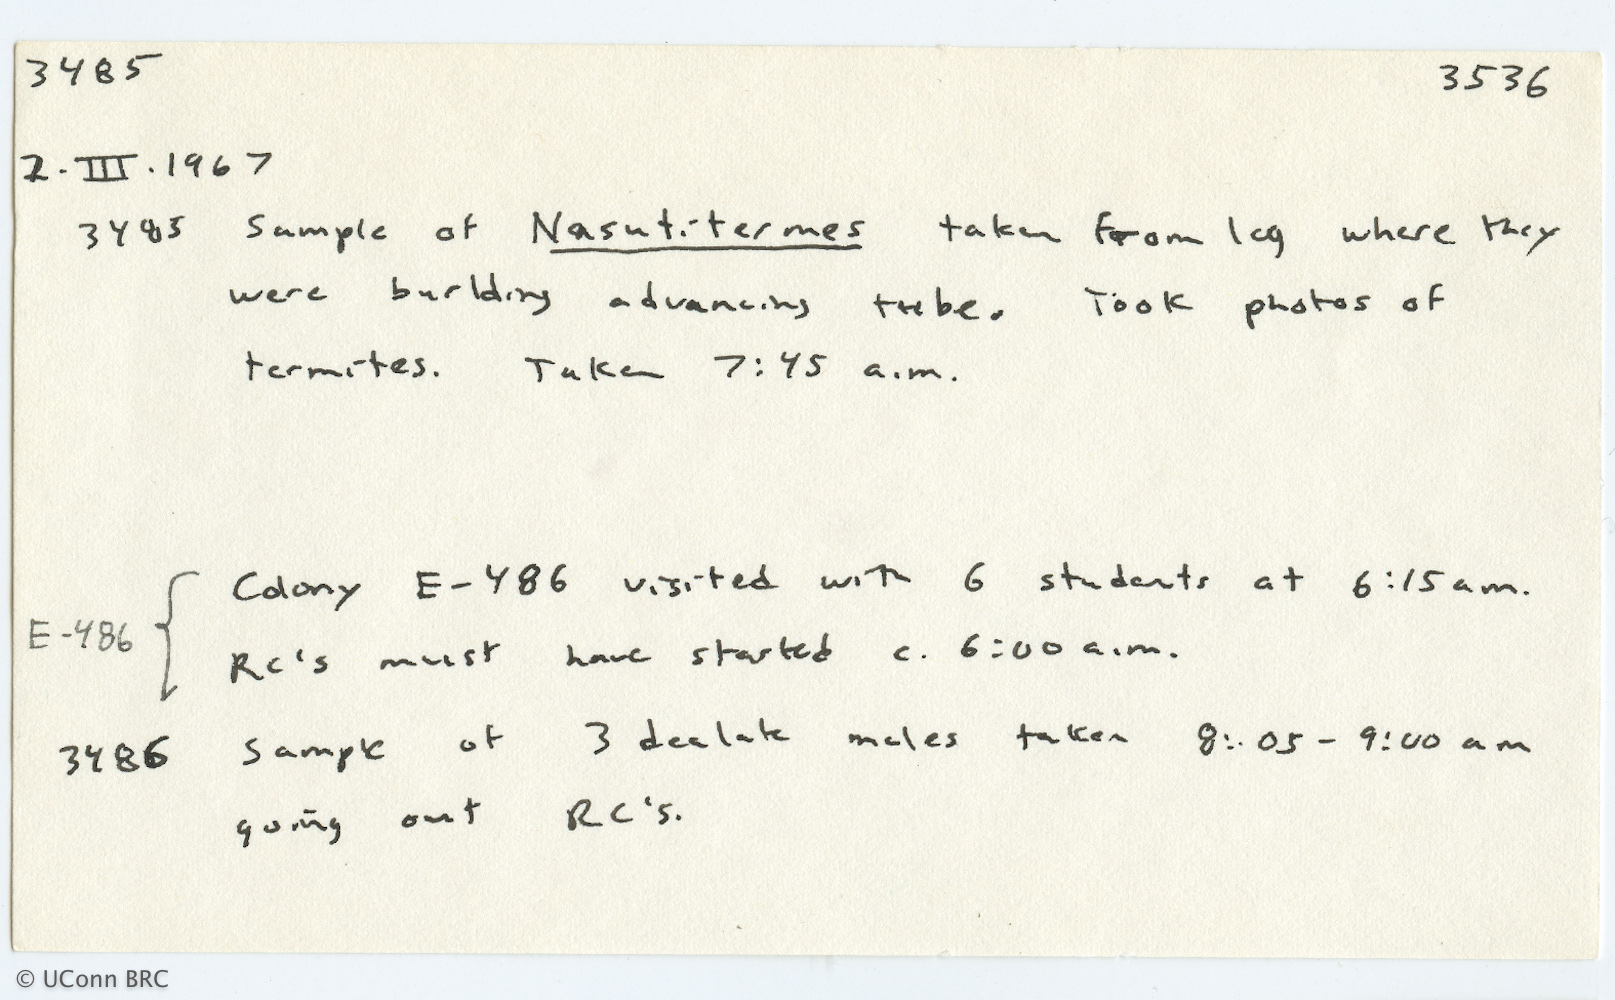 3485 3536
2.III.1967
3485 Sample of Nasutitermes taken from log where they
were building advancing tube. Took photos of
termites. Taken 7:45 a.m.
Colony E-486 visited with 6 students at 6:15 am.
E-486
RC's must have started c. 6:00 a.m.
3486 Sample of 3 dealate males taken 8:05 - 9:00 am
going out RC's.
© UConn BRC